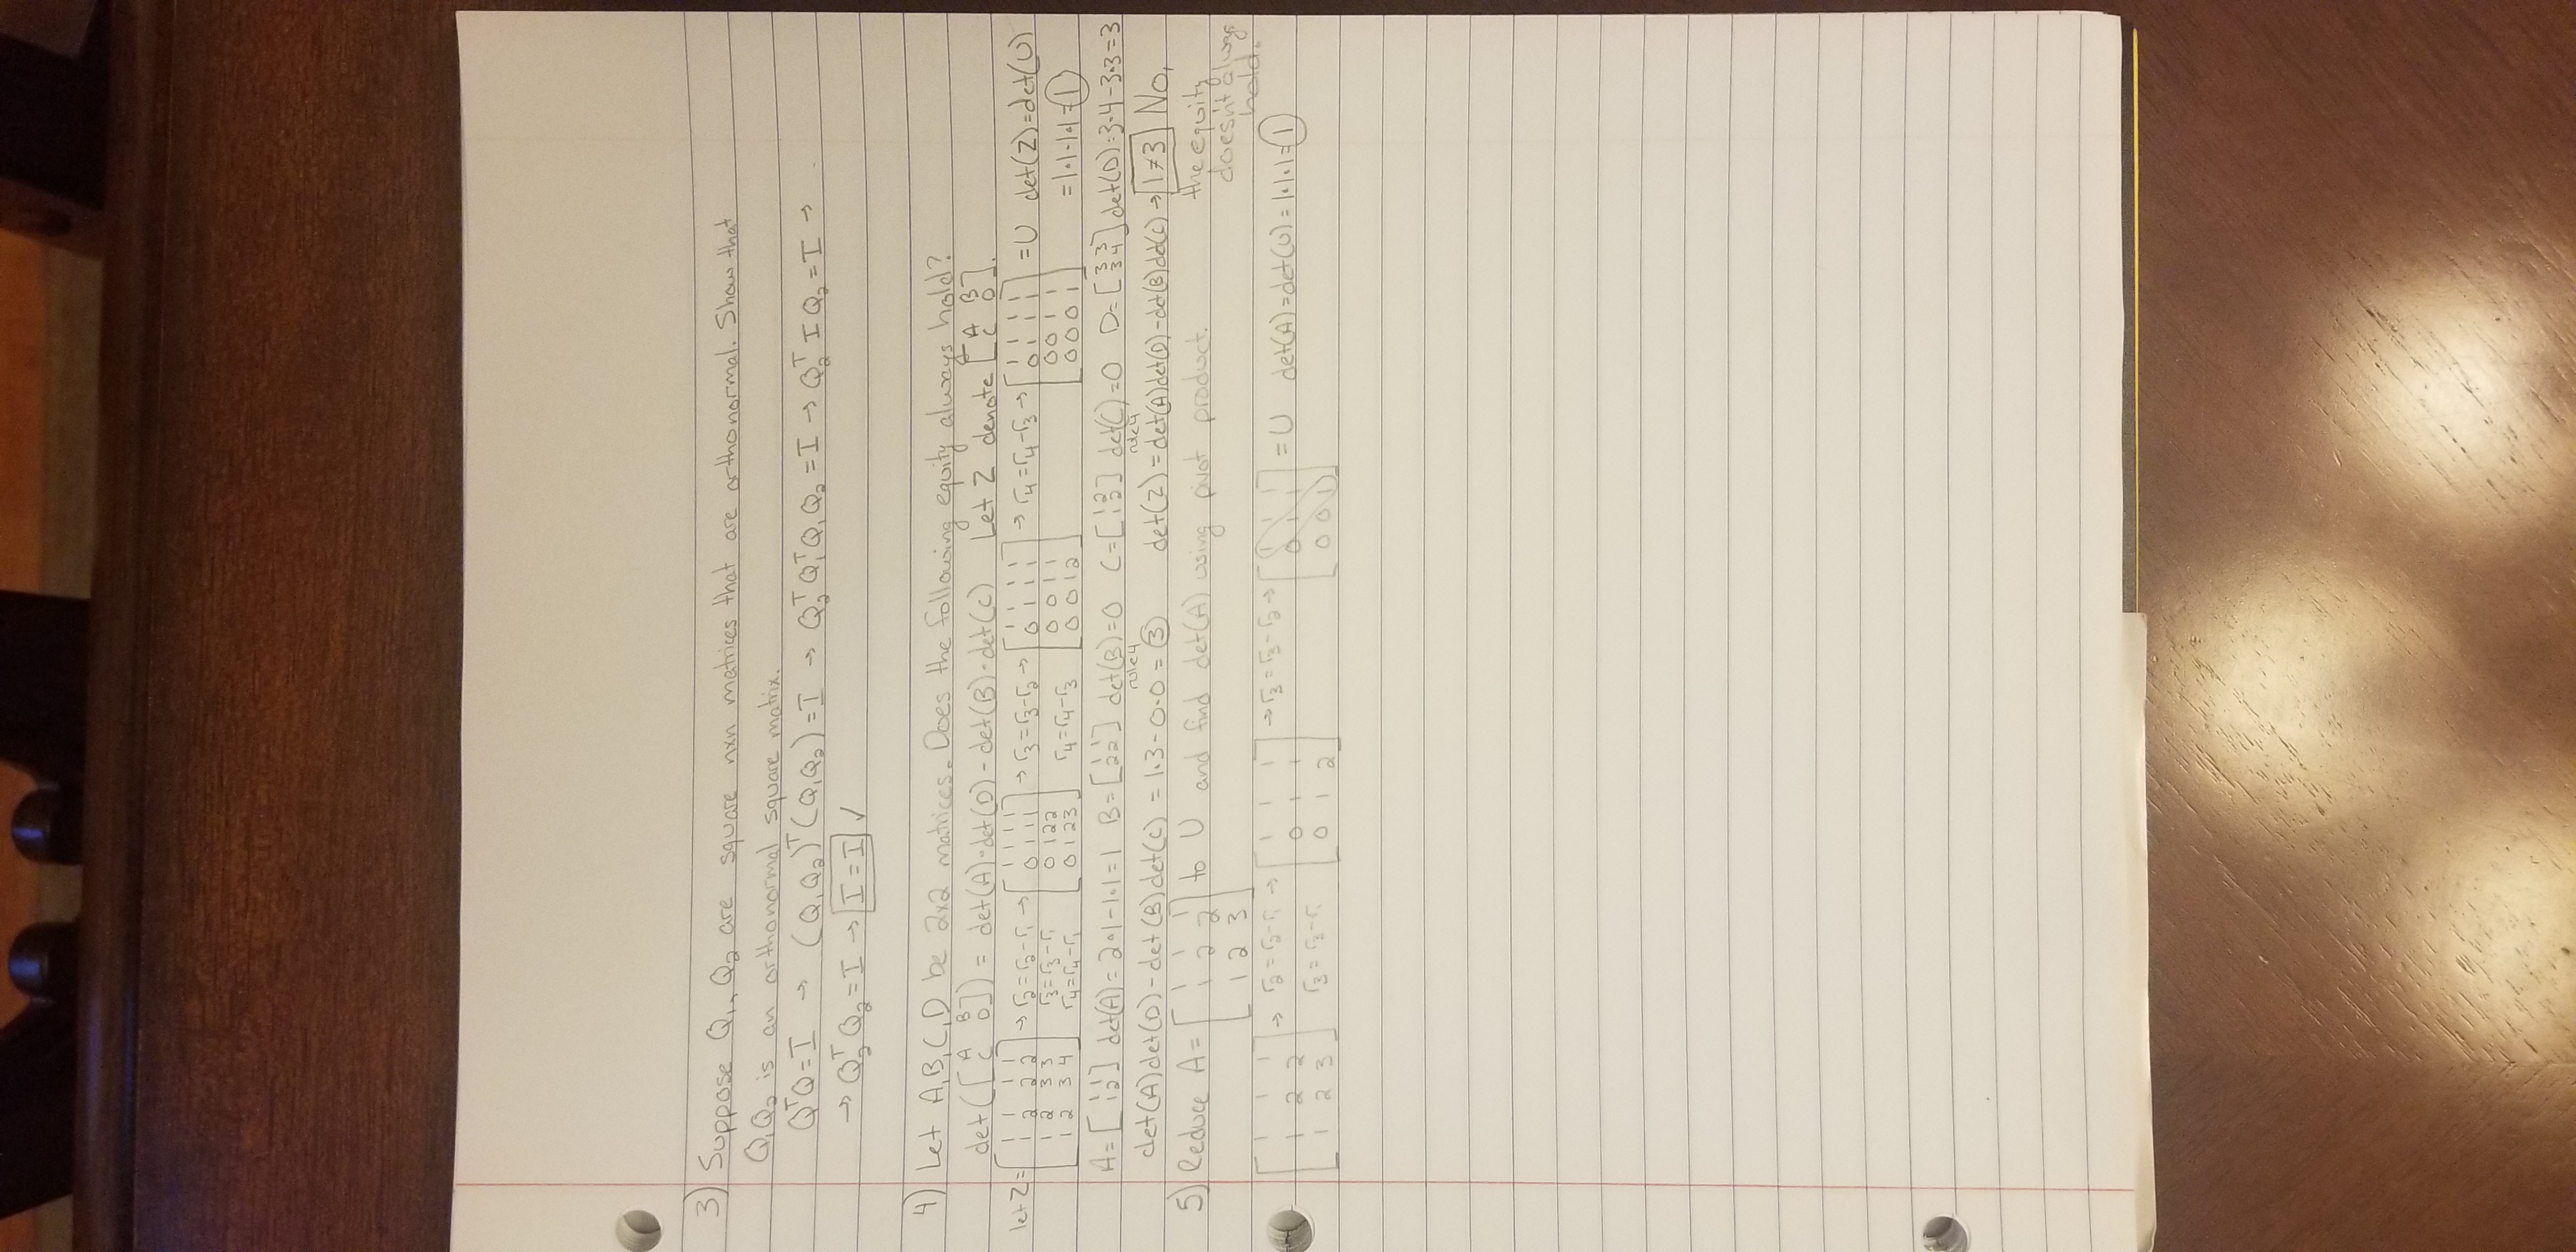 3) Suppose Q₁, Q₂ are square nxn matrices that are orthonormal. Show that
Q₁Q₂ is an orthonormal square matrix.
QᵀQ=I → (Q₁Q₂)ᵀ(Q₁Q₂)=I → Q₂ᵀQ₁ᵀQ₁Q₂=I → Q₂ᵀIQ₂=I →
→ Q₂ᵀQ₂=I → I=I ✓
4) Let A,B,C,D be 2x2 matrices. Does the following equity always hold?
det([A B; C D]) = det(A)·det(D)-det(B)·det(C) Let Z denote [A B; C D].
let Z=[1 1 1 1; 1 2 2 2; 1 2 3 3; 1 2 3 4] → r₂=r₂-r₁ r₃=r₃-r₁ r₄=r₄-r₁ → [1 1 1 1; 0 1 1 1; 0 1 2 2; 0 1 2 3] → r₃=r₃-r₂ r₄=r₄-r₃ → [1 1 1 1; 0 1 1 1; 0 0 1 1; 0 0 1 2] → r₄=r₄-r₃ → [1 1 1 1; 0 1 1 1; 0 0 1 1; 0 0 0 1] =U det(Z)=det(U)
=1·1·1·1=1
A=[1 1; 1 2] det(A)=2·1-1·1=1 B=[1 1; 2 2] det(B)=0 C=[1 2; 1 2] det(C)=0 D=[3 3; 3 4] det(D)=3·4-3·3=3
rule4 rule4
det(A)det(D)-det(B)det(C) = 1·3-0·0=3 det(Z)=det(A)det(D)-det(B)det(C) → 1≠3 No,
the equity
doesn't always
hold.
5) Reduce A=[1 1 1; 1 2 2; 1 2 3] to U and find det(A) using pivot product.
[1 1 1; 1 2 2; 1 2 3] → r₂=r₂-r₁ r₃=r₃-r₁ → [1 1 1; 0 1 1; 0 1 2] → r₃=r₃-r₂ → [1 1 1; 0 1 1; 0 0 1] =U det(A)=det(U)=1·1·1=1